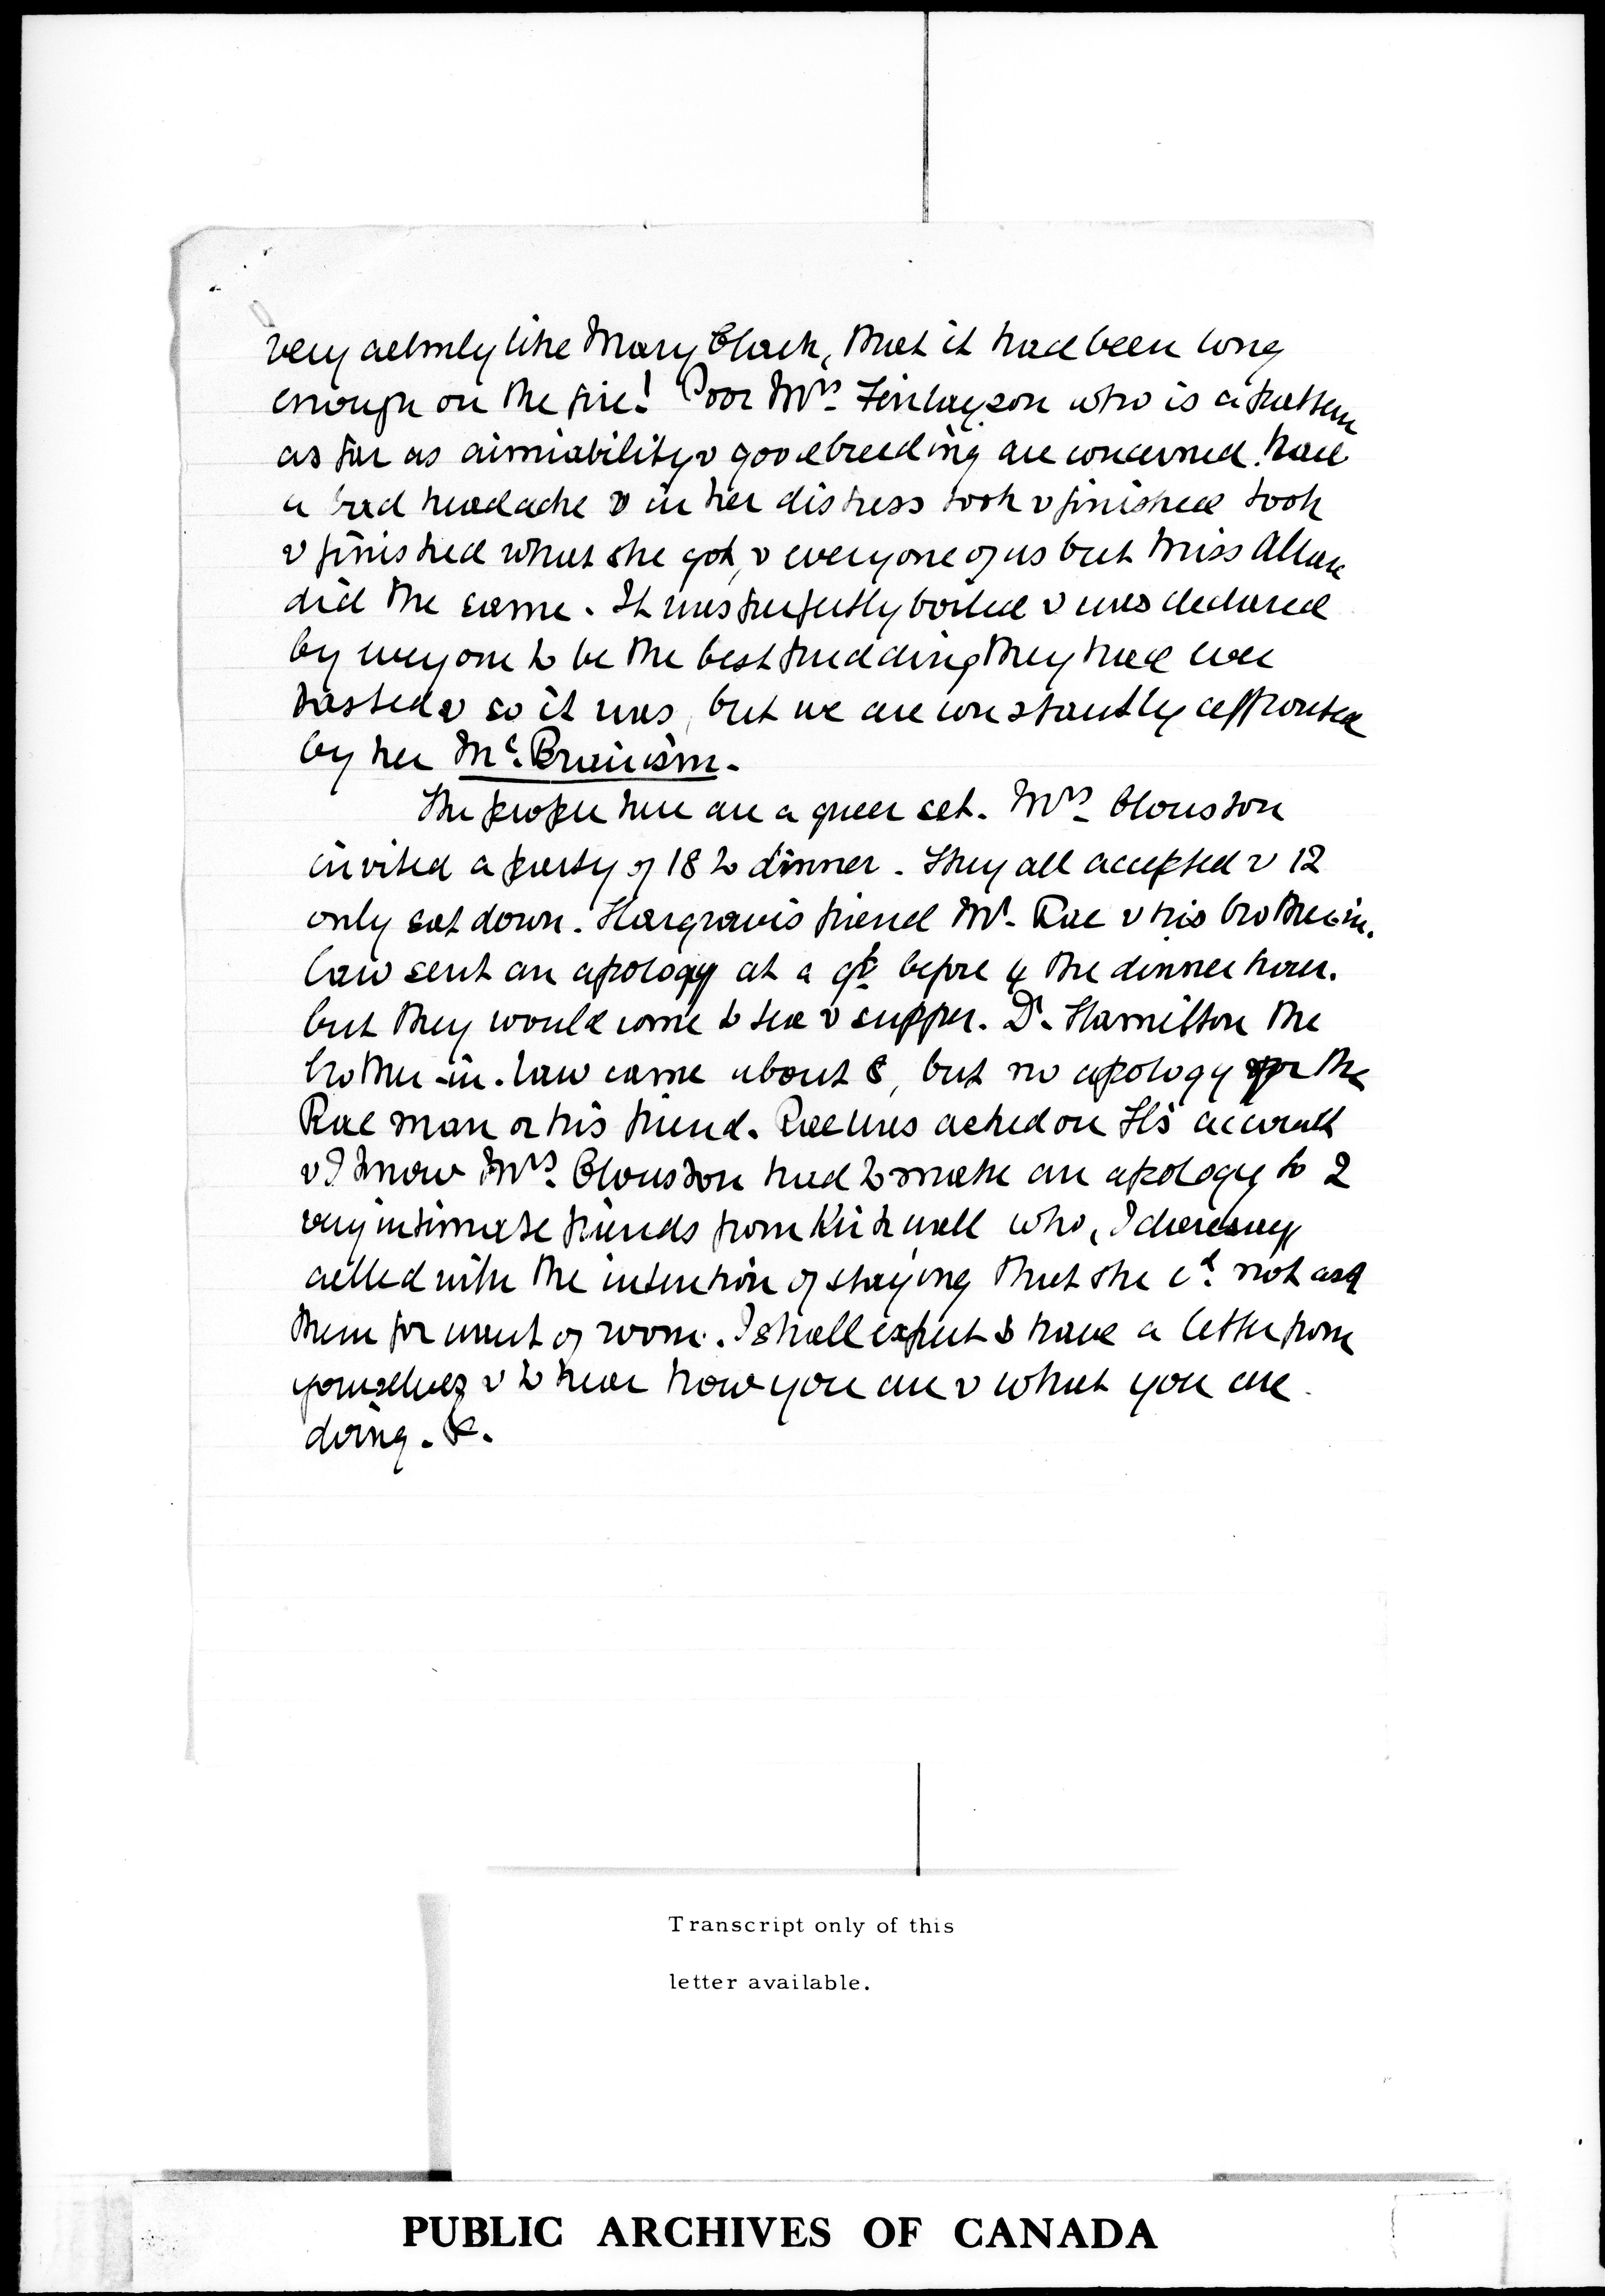 very calmly like Mary Clark, that it had been long
enough on the fire! Poor Mrs. Finlayson who is a pattern
as far as aimiability & good breeding are concerned. had
a bad headache & in her distress took & finished took
& finished what she got, & everyone of us but Miss Allan
did the same. It was perfectly boiled & was declared
by everyone to be the best pudding they had ever
tasted & so it was, but we are constantly affronted
by her Mc.
The people here are a queer set. Mrs. Clouston
invited a party of 18 to dinner. They all accepted & 12
only sat down. Hargraves friend Mr. Rae & his brother in.
law sent an apology at a qr. before 4 the dinner hour.
but they would come to tea & supper. Dr. Hamilton the
brother-in-law came about 8, but no apology for the
Rae man or his friend. Rae was asked on H's account
& I know Mrs. Clouston had to make an apology to 2
very intimate friends from Kirkwall who, I daresay
called with the intention of staying that she cd. not ask
them for want of room. I shall expect to have a letter from
yourselves & to hear how you are & what you are
doing. &.
Transcript only of this
letter available.
PUBLIC ARCHIVES OF CANADA